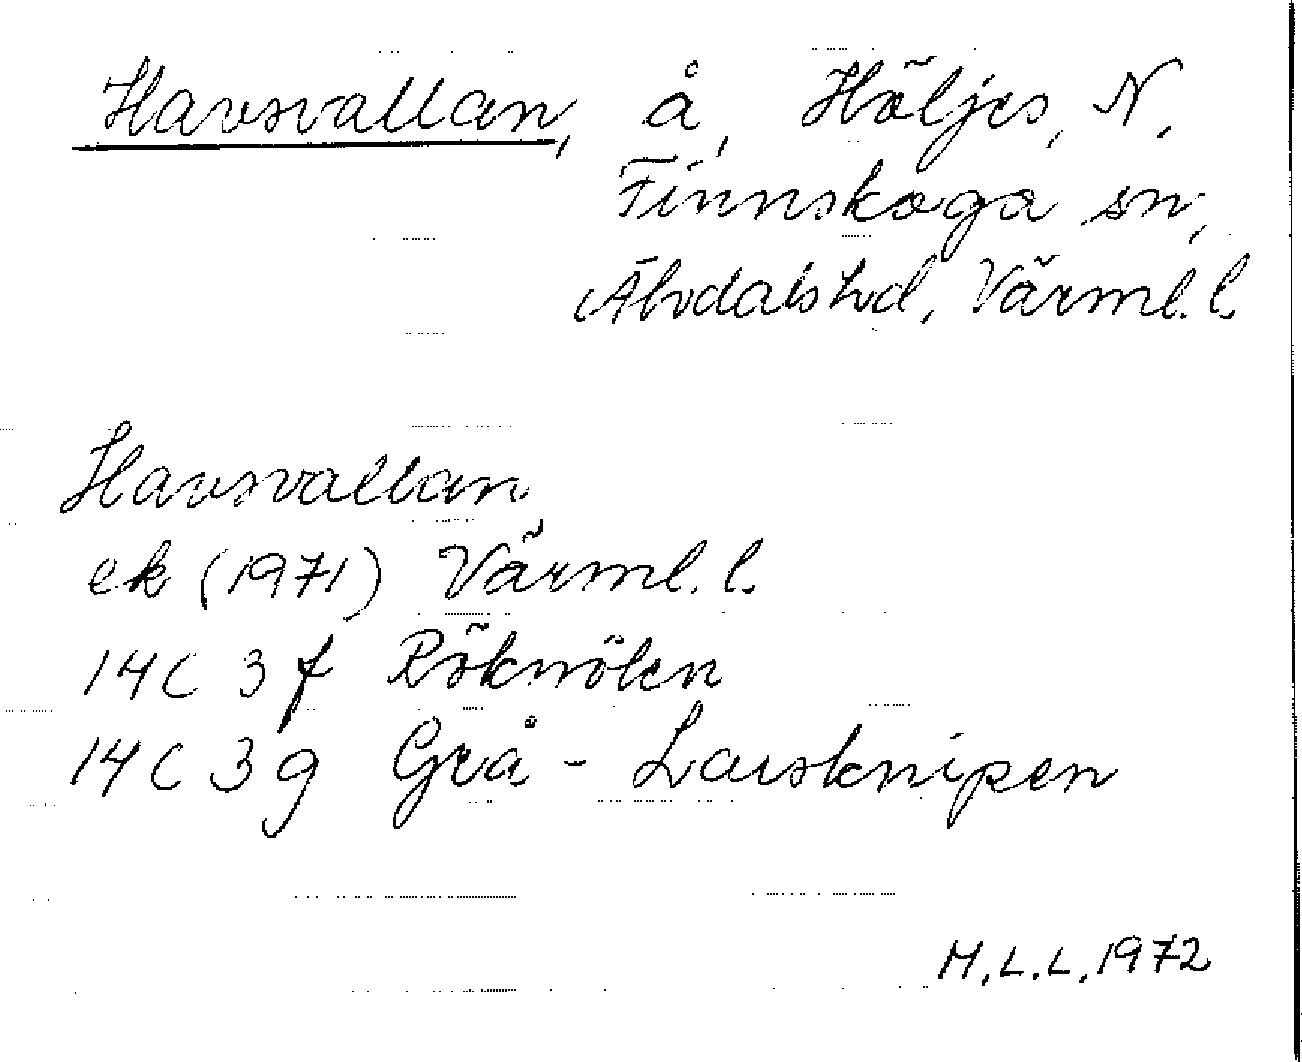 Havsvallan, å, Höljes, N.
Finnskoga sn,
Älvdals hd, Värml. l.
Havsvallan
ek (1971) Värml. l.
14C 3f Röknölen
14C 3g Grå-Larsknipen
M.L.L. 1972